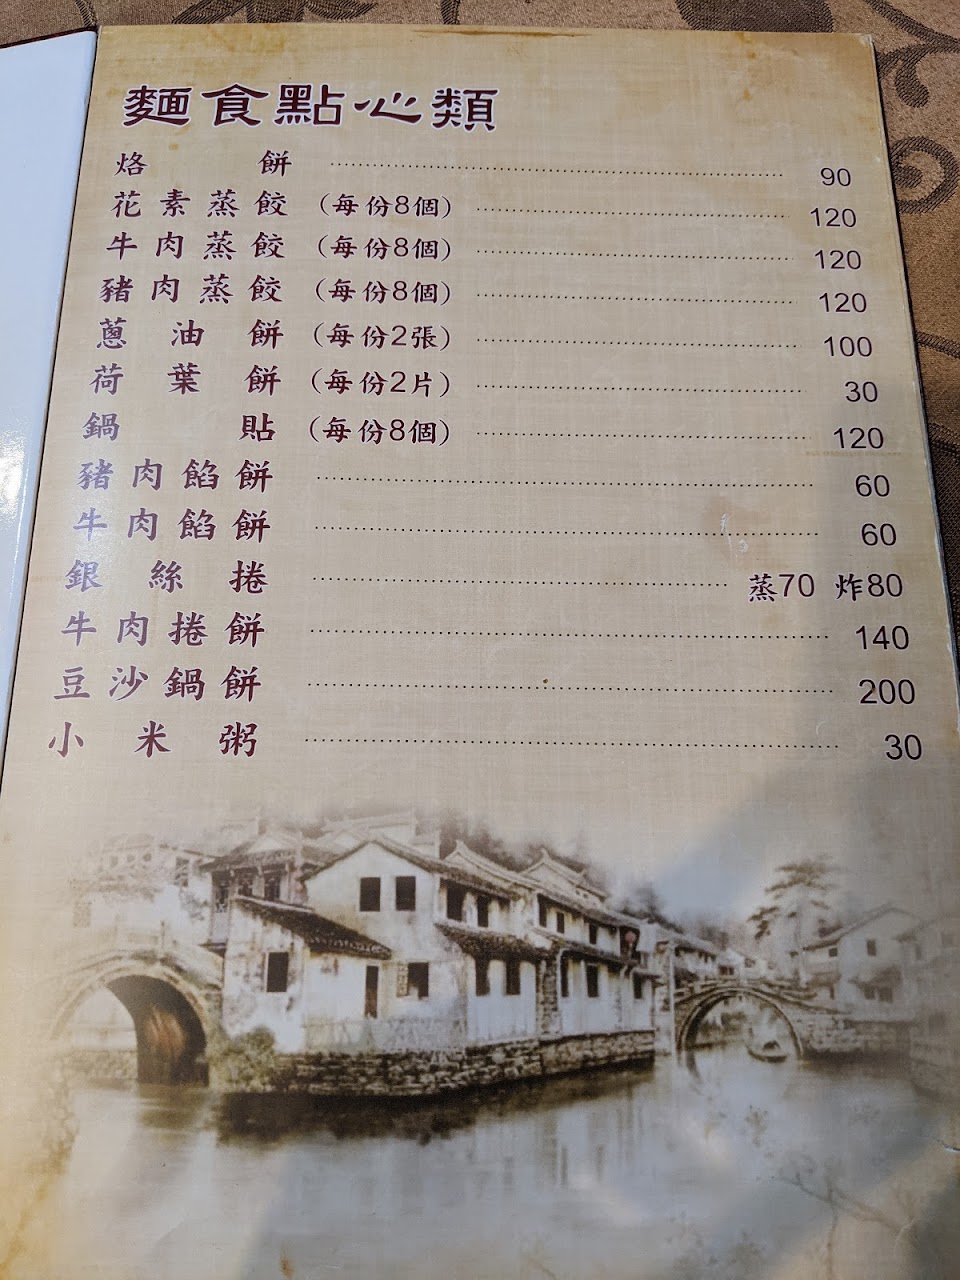 麵食點心類
烙餅 90
花素蒸餃 (每份8個) 120
牛肉蒸餃 (每份8個) 120
豬肉蒸餃 (每份8個) 120
蔥油餅 (每份2張) 100
荷葉餅 (每份2片) 30
鍋貼 (每份8個) 120
豬肉餡餅 60
牛肉餡餅 60
銀絲捲 蒸70 炸80
牛肉捲餅 140
豆沙鍋餅 200
小米粥 30